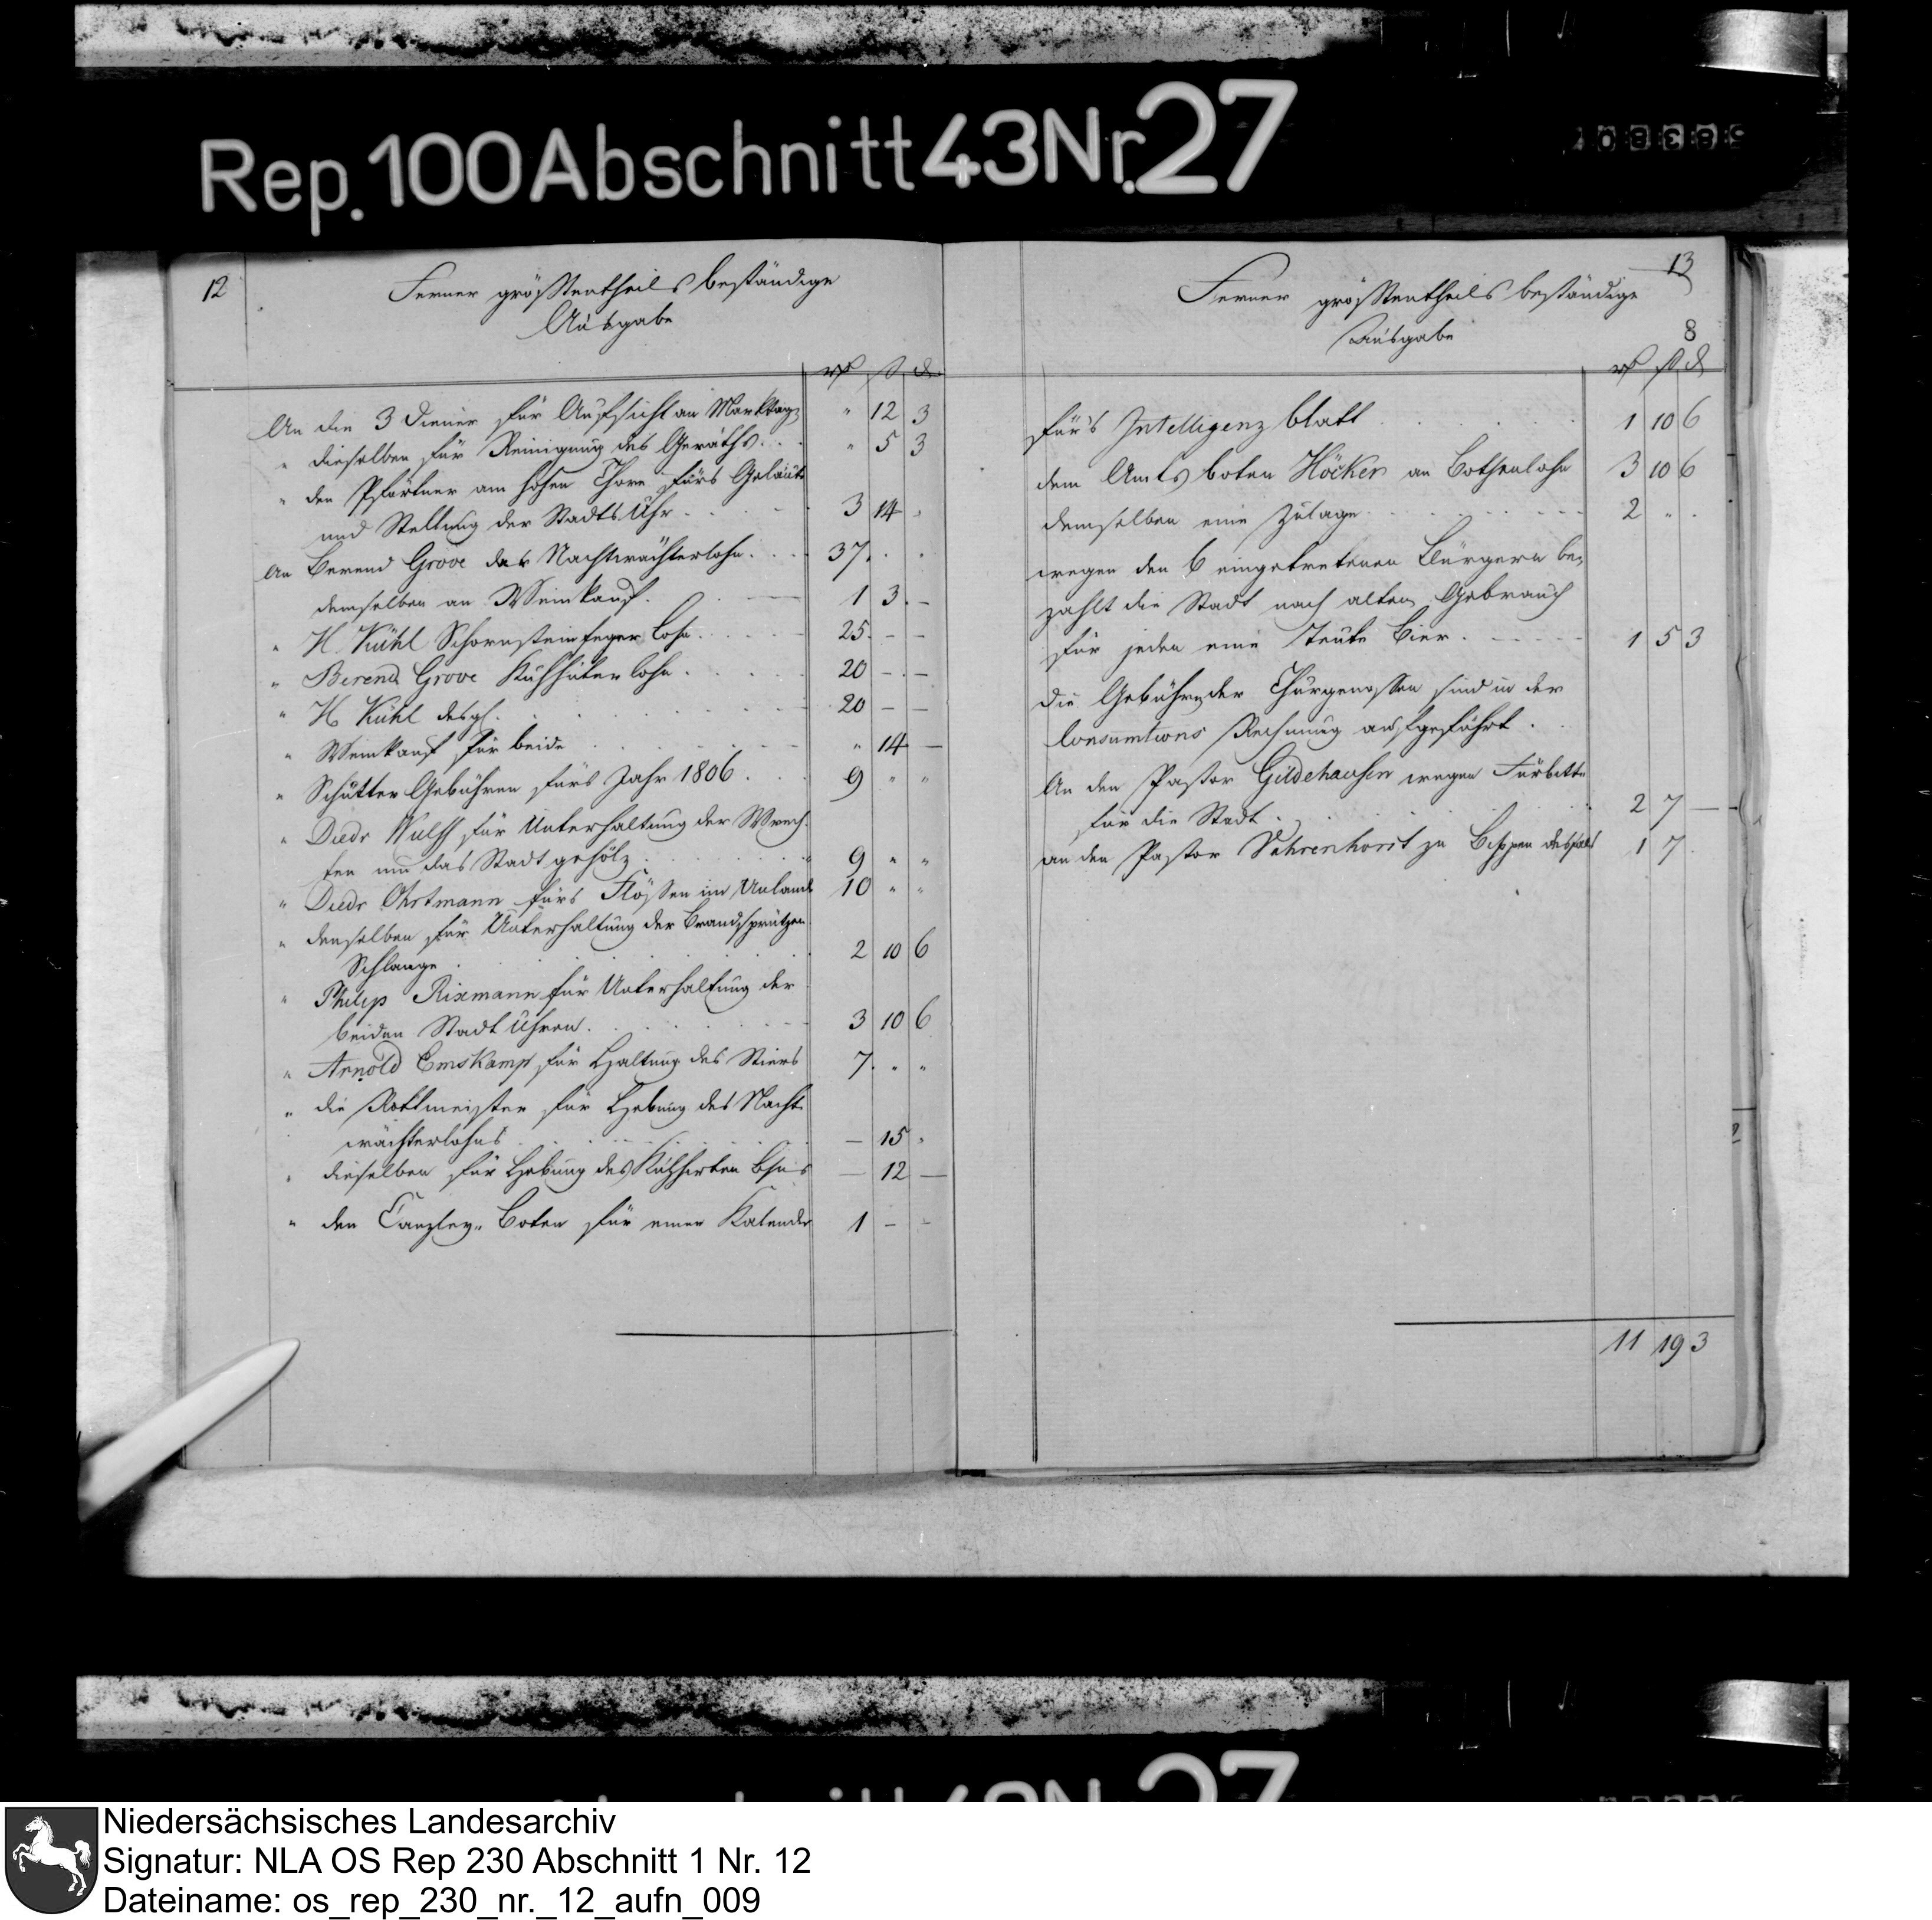 Rep. 100 Abschnitt 43 Nr. 27
12
Ferner größtentheils beständige
Ausgabe
An die 3 Diener für Aufsicht an Markttag " 12 3
" dieselben für Reinigung des Geräths " 5 3
" den Pförtner am hohen Thore fürs Geläute
und Stellung der Stadts Uhr 3 14 "
An Berend Grove das Nachtwächterlohn 37 . .
demselben an Weinkauf 1 3 –
" H. Kühl Schornsteinfeger Lohn 25 – –
" Berend Grove Kuhhüterlohn 20 – –
" H Kühl desgl. 20 – –
" Weinkauf für beide " 14 –
" Schütter Gebühren fürs Jahr 1806 9 " "
" Diedr Wulff für Unterhaltung der Wrech¬
ten um das Stadtgehölz 9 " "
" Diedr Ohrtmann fürs Flößen im Unlande 10 " "
" denselben für Unterhaltung der Brandsprützen
Schlange 2 10 6
" Philip Rixmann für Unterhaltung der
beiden Stadt Uhren 3 10 6
" Arnold Emskamp für Haltung des Stiers 7 " "
" die Rottmeister für Hebung des Nacht
wächterlohns – 15 "
" dieselben für Hebung des Kuhhirten Lohns – 12 –
" den Canzley- Boten für einen Kalender 1 – –
13
Ferner größtentheils beständige
Ausgabe
8
fürs Intelligenz blatt 1 10 6
dem Amts boten Höcker an Bothenlohn 3 10 6
demselben eine Zulage 2 " .
wegen den 6 eingetretenen Bürgern be¬
zahlt die Stadt nach alten Gebrauch
für jeden eine Teute Bier 1 5 3
Die Gebühren der Churgenossen sind in der
Consumtions Rechnung aufgeführt.
An den Pastor Gildehausen wegen Fürbitte
für die Stadt 2 7 –
an den Pastor Vahrenhorst zu Bippen desfals 1 7
11 19 3
Niedersächsisches Landesarchiv
Signatur: NLA OS Rep 230 Abschnitt 1 Nr. 12
Dateiname: os_rep_230_nr._12_aufn_009